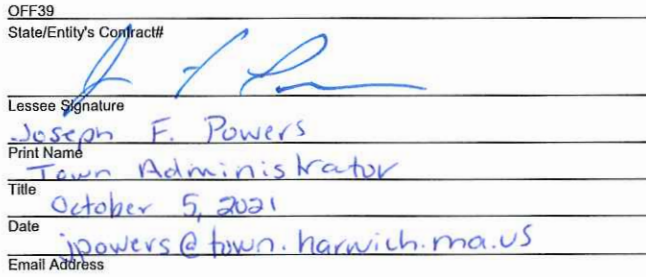 OFF39
State/Entity's Contract#
Lessee Signature
Joseph F. Powers
Print Name
Town Administrator
Title
October 5, 2021
Date
jpowers@town.harwich.ma.us
Email Address